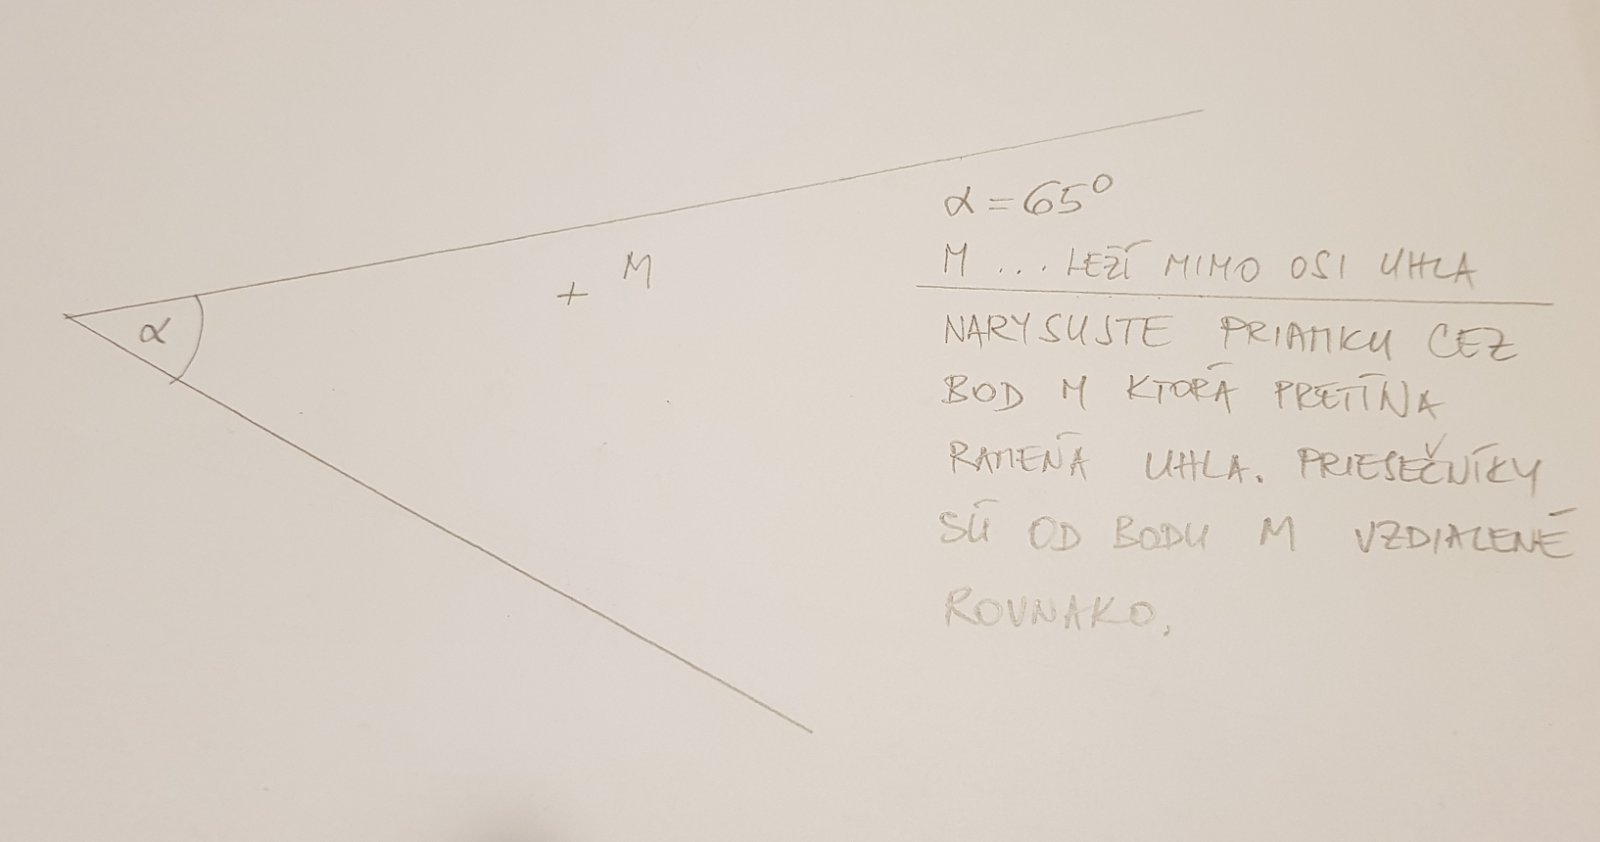 α
M
α = 65°
M ... LEŽÍ MIMO OSI UHLA
NARYSUJTE PRIAMKU CEZ
BOD M KTORÁ PRETÍNA
RAMENÁ UHLA. PRIESEČNÍKY
SÚ OD BODU M VZDIALENÉ
ROVNAKO.